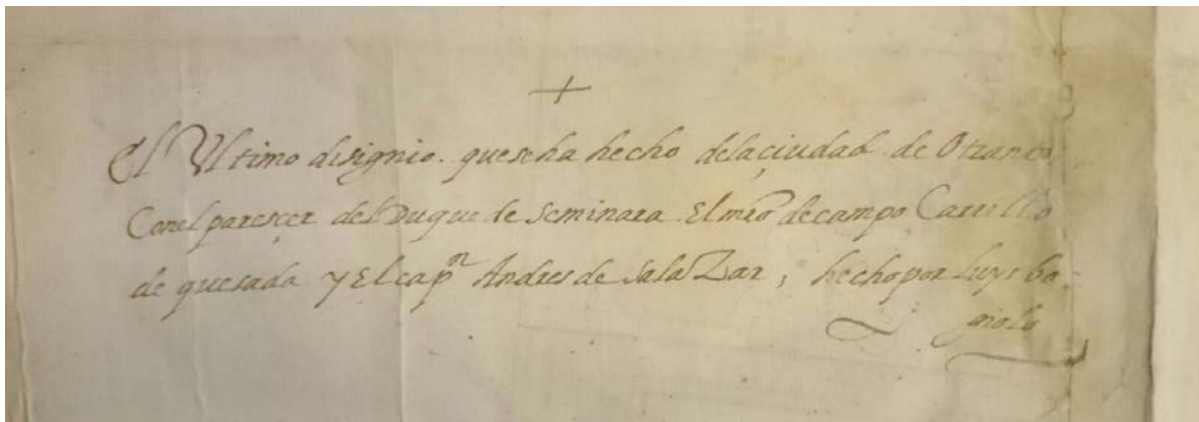 +
El Ultimo disignio. que se ha hecho dela ciudad de Otranto
Con el parescer del Duque de Seminara El mrõ de campo Carrillo
de quesada y El capⁿ Andres de SalaZar, hecho por Luys ba-
giolo